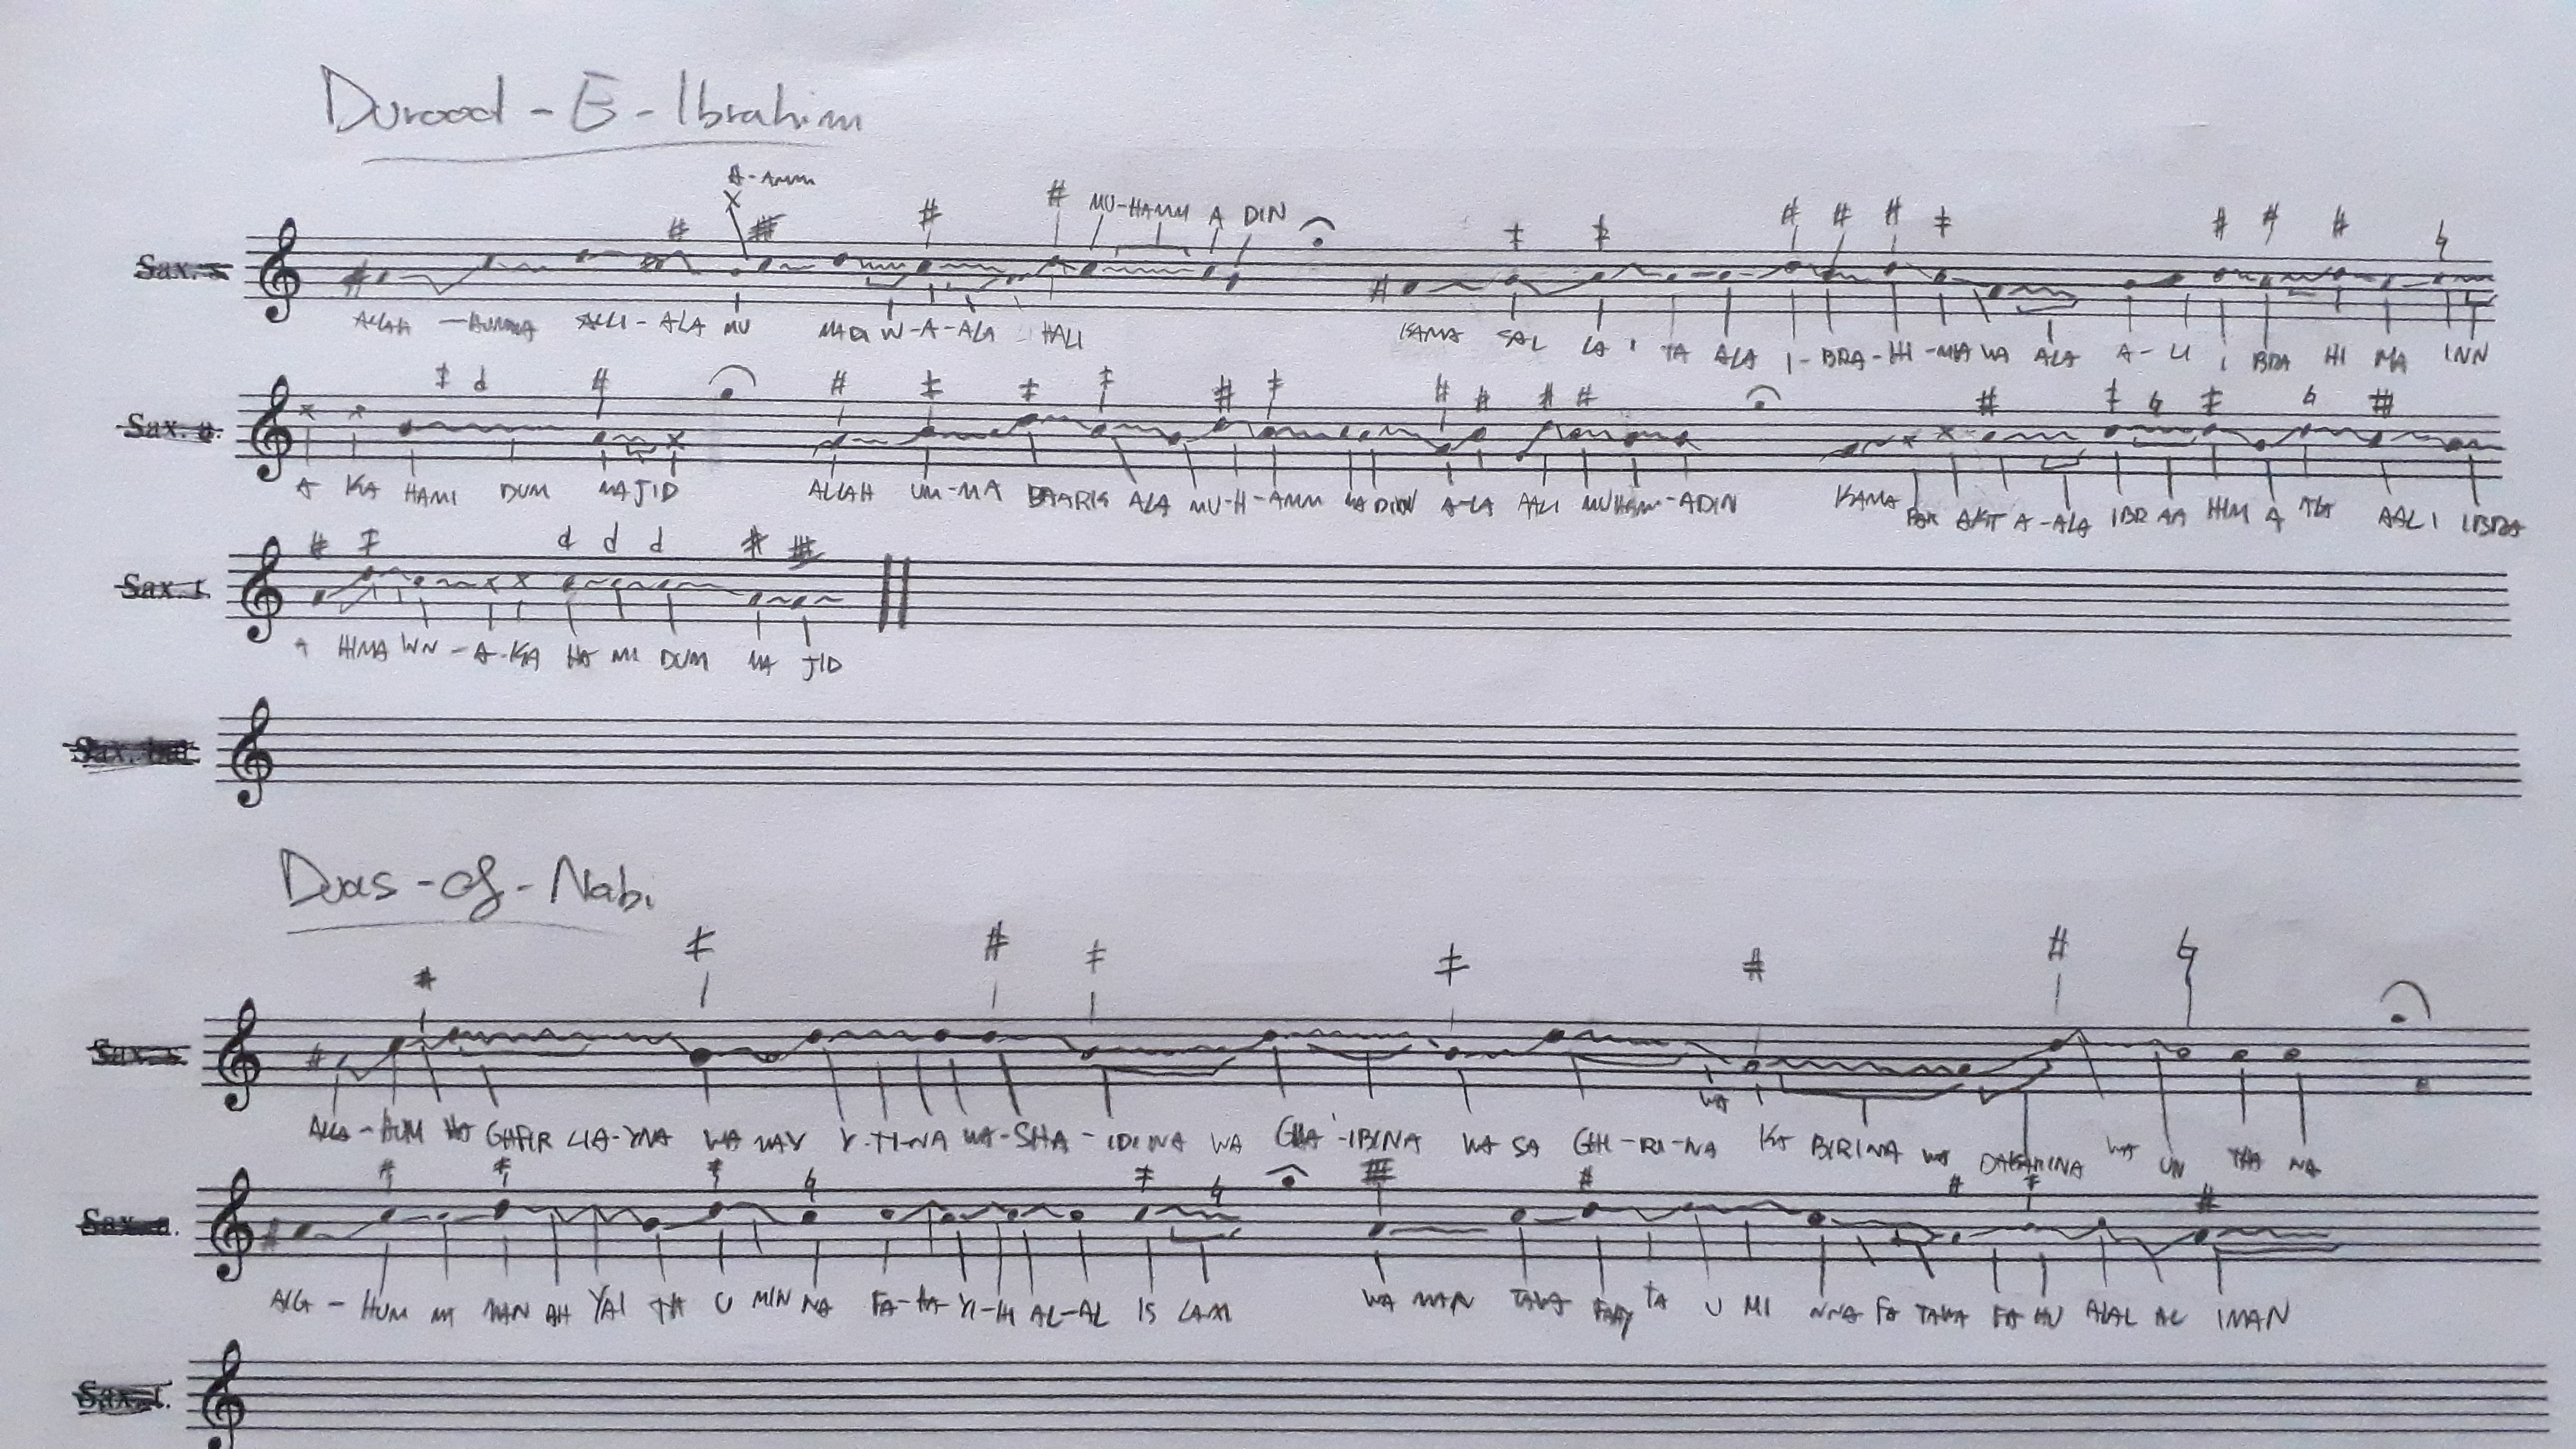 Durood-E-Ibrahim
A-AMM
MU-HAMM A DIN
ALLAH -HUMMA SALLI-ALA MU MADI W-A-ALA HALI KAMA SAL LA I TA ALA I-BRA-HI-MA WA ALA A-LI I BRA HI MA INN
A KA HAMI DUM MAJID ALLAH UM-MA BAARIK ALA MU-H-AMM MA DIN A-LA AALI MUHAM-ADIN KAMA BAR AKT A-ALA IBR AA HIM A ALA AALI IBRA
A HIMA WN-A-KA HA MI DUM MA JID
Duas-of-Nabi
ALLA-HUM MA GHFIR LIA-YNA WA MAY Y-TI-NA WA-SHA-IDINA WA GHA-IBINA WA SA GHI-RI-NA WA KA BIRINA WA WA UN THA NA
ALLA-HUM MA MAN AH YAI TA U MIN NA FA-HA YI-HI AL-AL IS LAM WA MAN TAWA FAAY TA U MI NNA FA TAWA FA HU ALAL AL IMAN